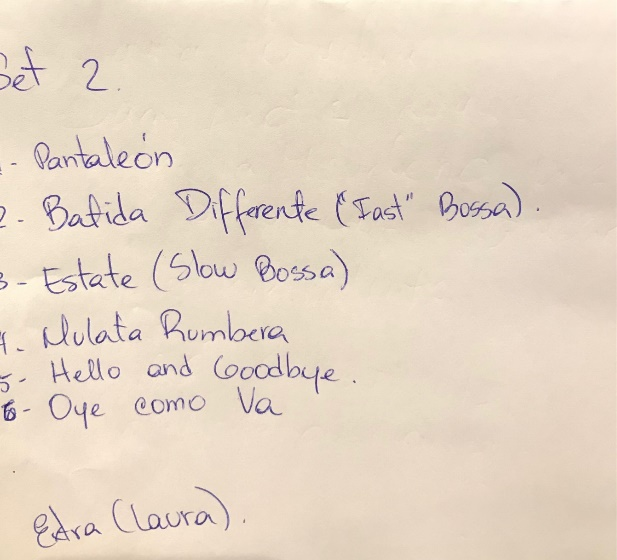 Set 2.
- Pantaleón
2- Batida Differente ("Fast" Bossa).
3- Estate (Slow Bossa)
4- Mulata Rumbera
5- Hello and Goodbye.
6- Oye como Va
Extra (Laura).